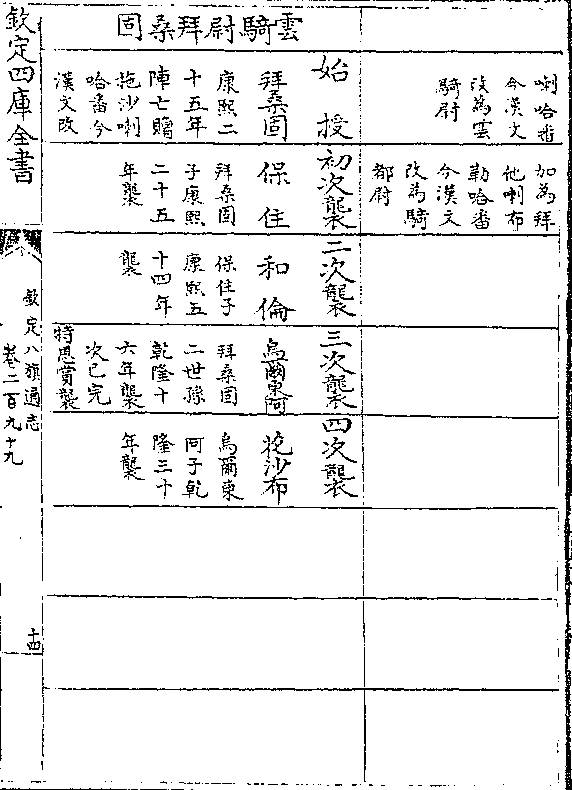 喇哈番
今漢文
改為雲
騎尉
加為拜
他喇布
勒哈番
今漢文
改為騎
都尉
雲騎尉拜桑固
始授
拜桑固
康熙二
十五年
陣亡贈
拖沙喇
哈番今
漢文改
初次襲
保住
拜桑固
子康熙
二十五
年襲
二次襲
和倫
保住子
康熙五
十四年
襲
三次襲
烏爾東阿
拜桑固
二世孫
乾隆十
六年襲
次已完
特恩賞襲
四次襲
花沙布
烏爾東
阿子乾
隆三十
年襲
欽定四庫全書
欽定八旗通志
卷二百九十九
十四